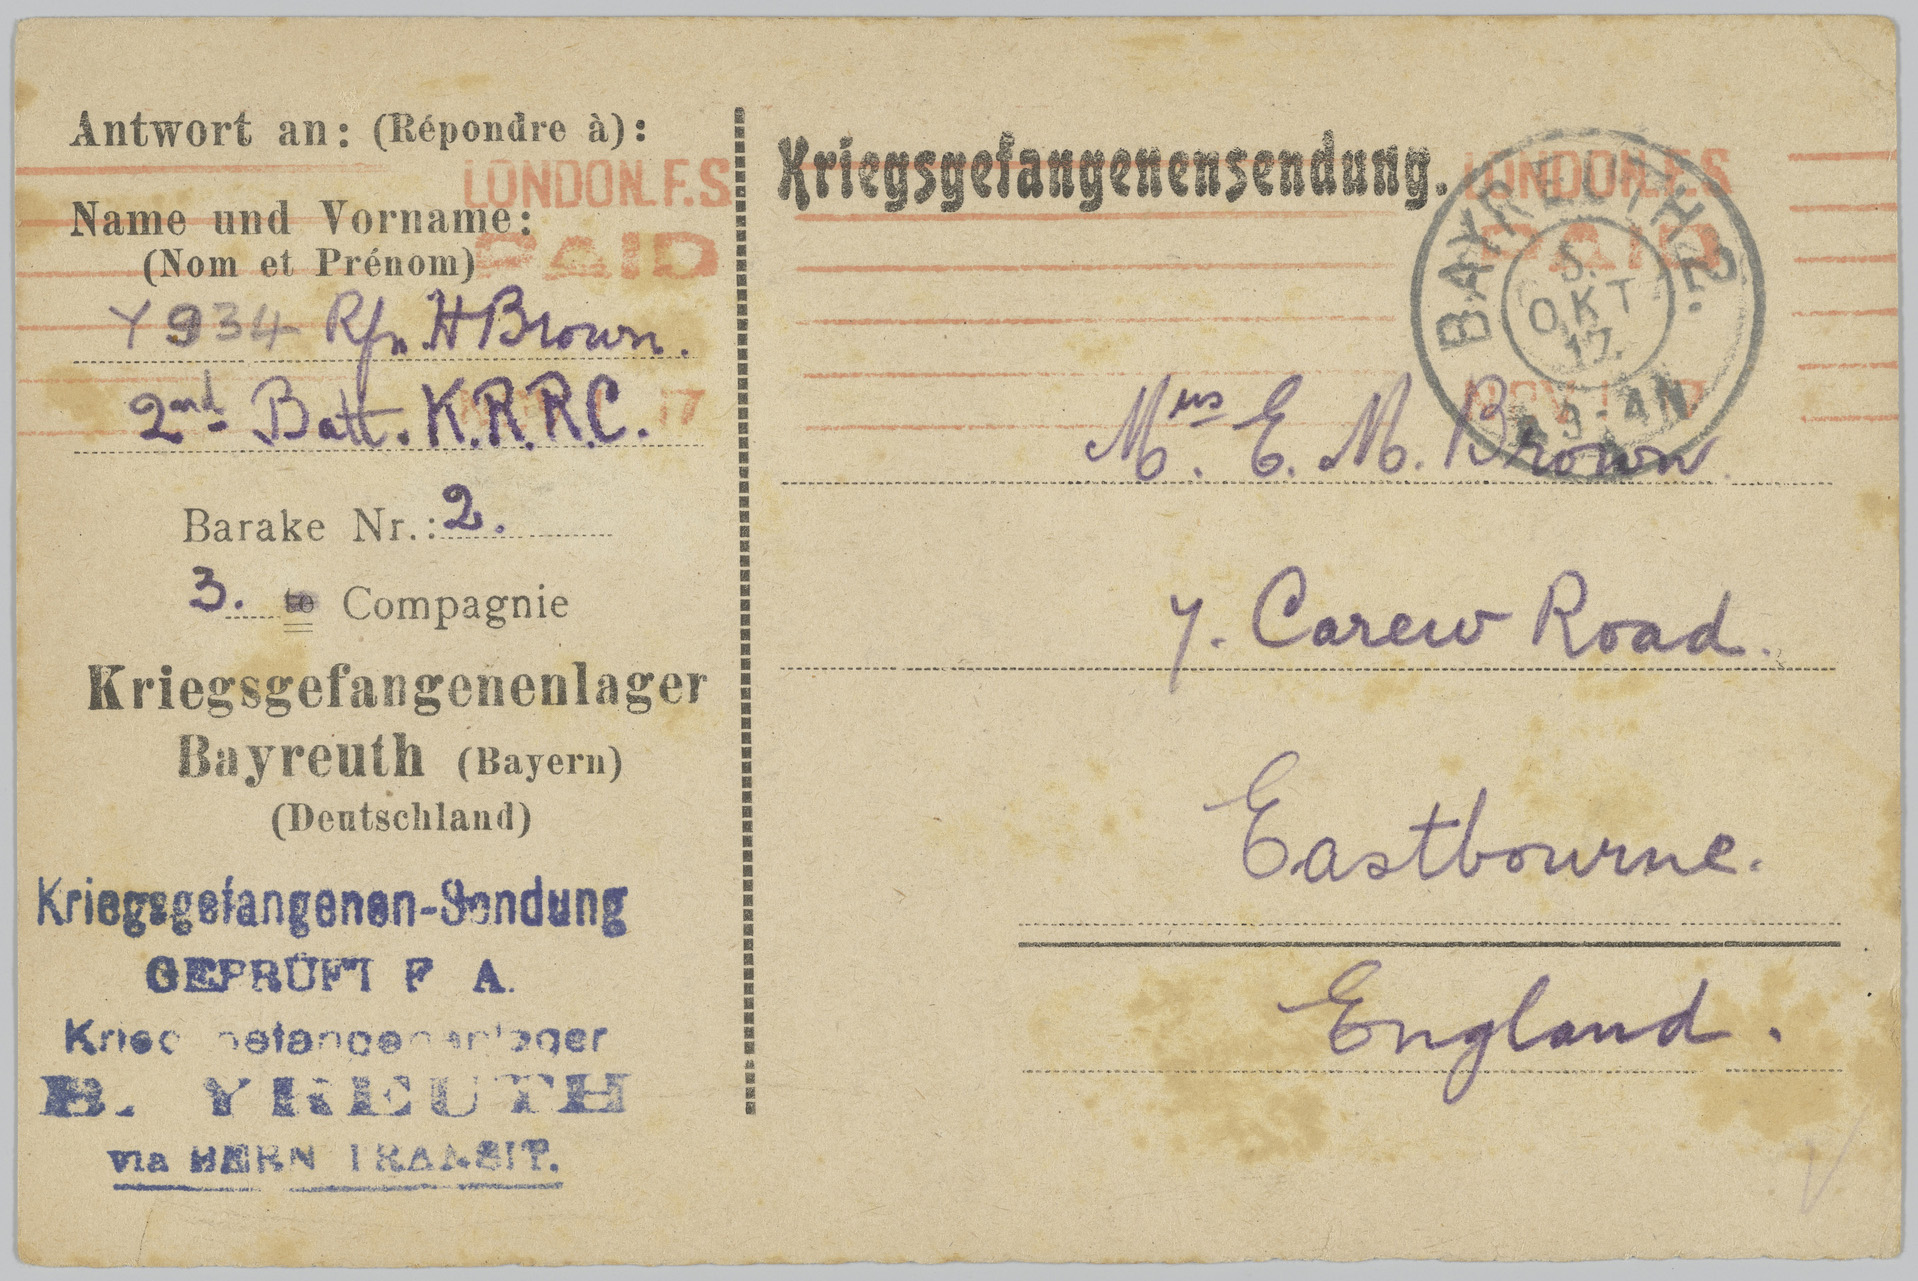 Antwort an: (Répondre à):
LONDON. F.S
PAID
Name und Vorname:
(Nom et Prénom)
Y 934 Rfn H Brown.
2nd Batt. K.R.R.C.
17
Barake Nr.: 2.
3. te Compagnie
Kriegsgefangenenlager
Bayreuth (Bayern)
(Deutschland)
Kriegsgefangenen-Sendung
GEPRÜFT F A.
Kriegsgefangenenlager
BAYREUTH
via BERN TRANSIT.
Kriegsgefangenensendung.
LONDON. F.S
PAID
NOV 17
BAYREUTH 2.
5.
OKT
17.
Mrs. E. M. Brown.
7. Carew Road.
Eastbourne.
England.